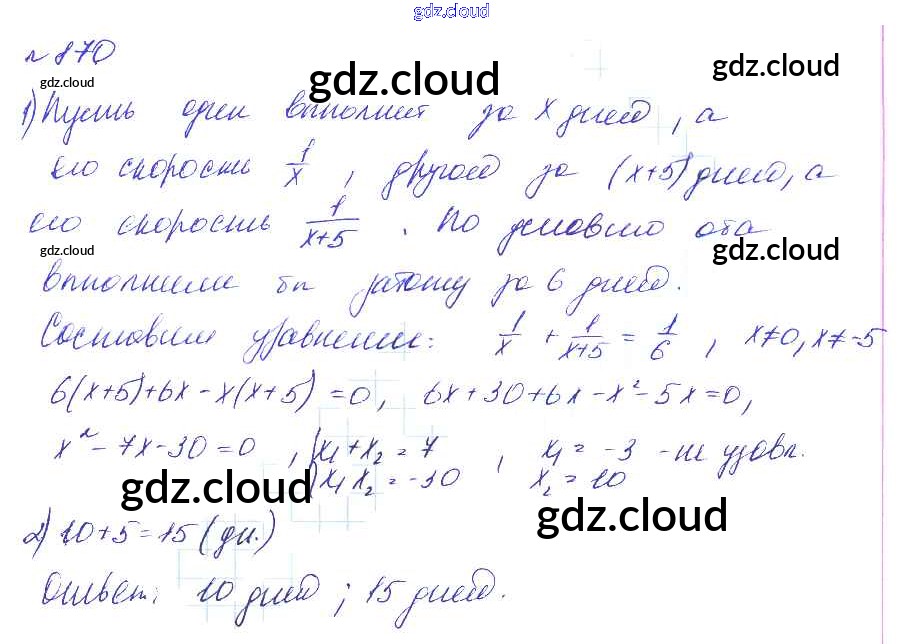 gdz.cloud
№ 870
gdz.cloud gdz.cloud gdz.cloud
1) Пусть один выполнит за x дней, а
его скорость 1/x, другой за (x+5) дней, а
его скорость 1/(x+5). По условию оба
gdz.cloud gdz.cloud
выполнили бы работу за 6 дней.
Составим уравнение: 1/x + 1/(x+5) = 1/6, x≠0, x≠-5
6(x+5)+6x-x(x+5)=0, 6x+30+6x-x²-5x=0,
x²-7x-30=0, { x₁+x₂=7 , x₁=-3 - не удовл.
x₁x₂=-30 x₂=10
gdz.cloud gdz.cloud
2) 10+5=15 (дн.)
Ответ: 10 дней; 15 дней.